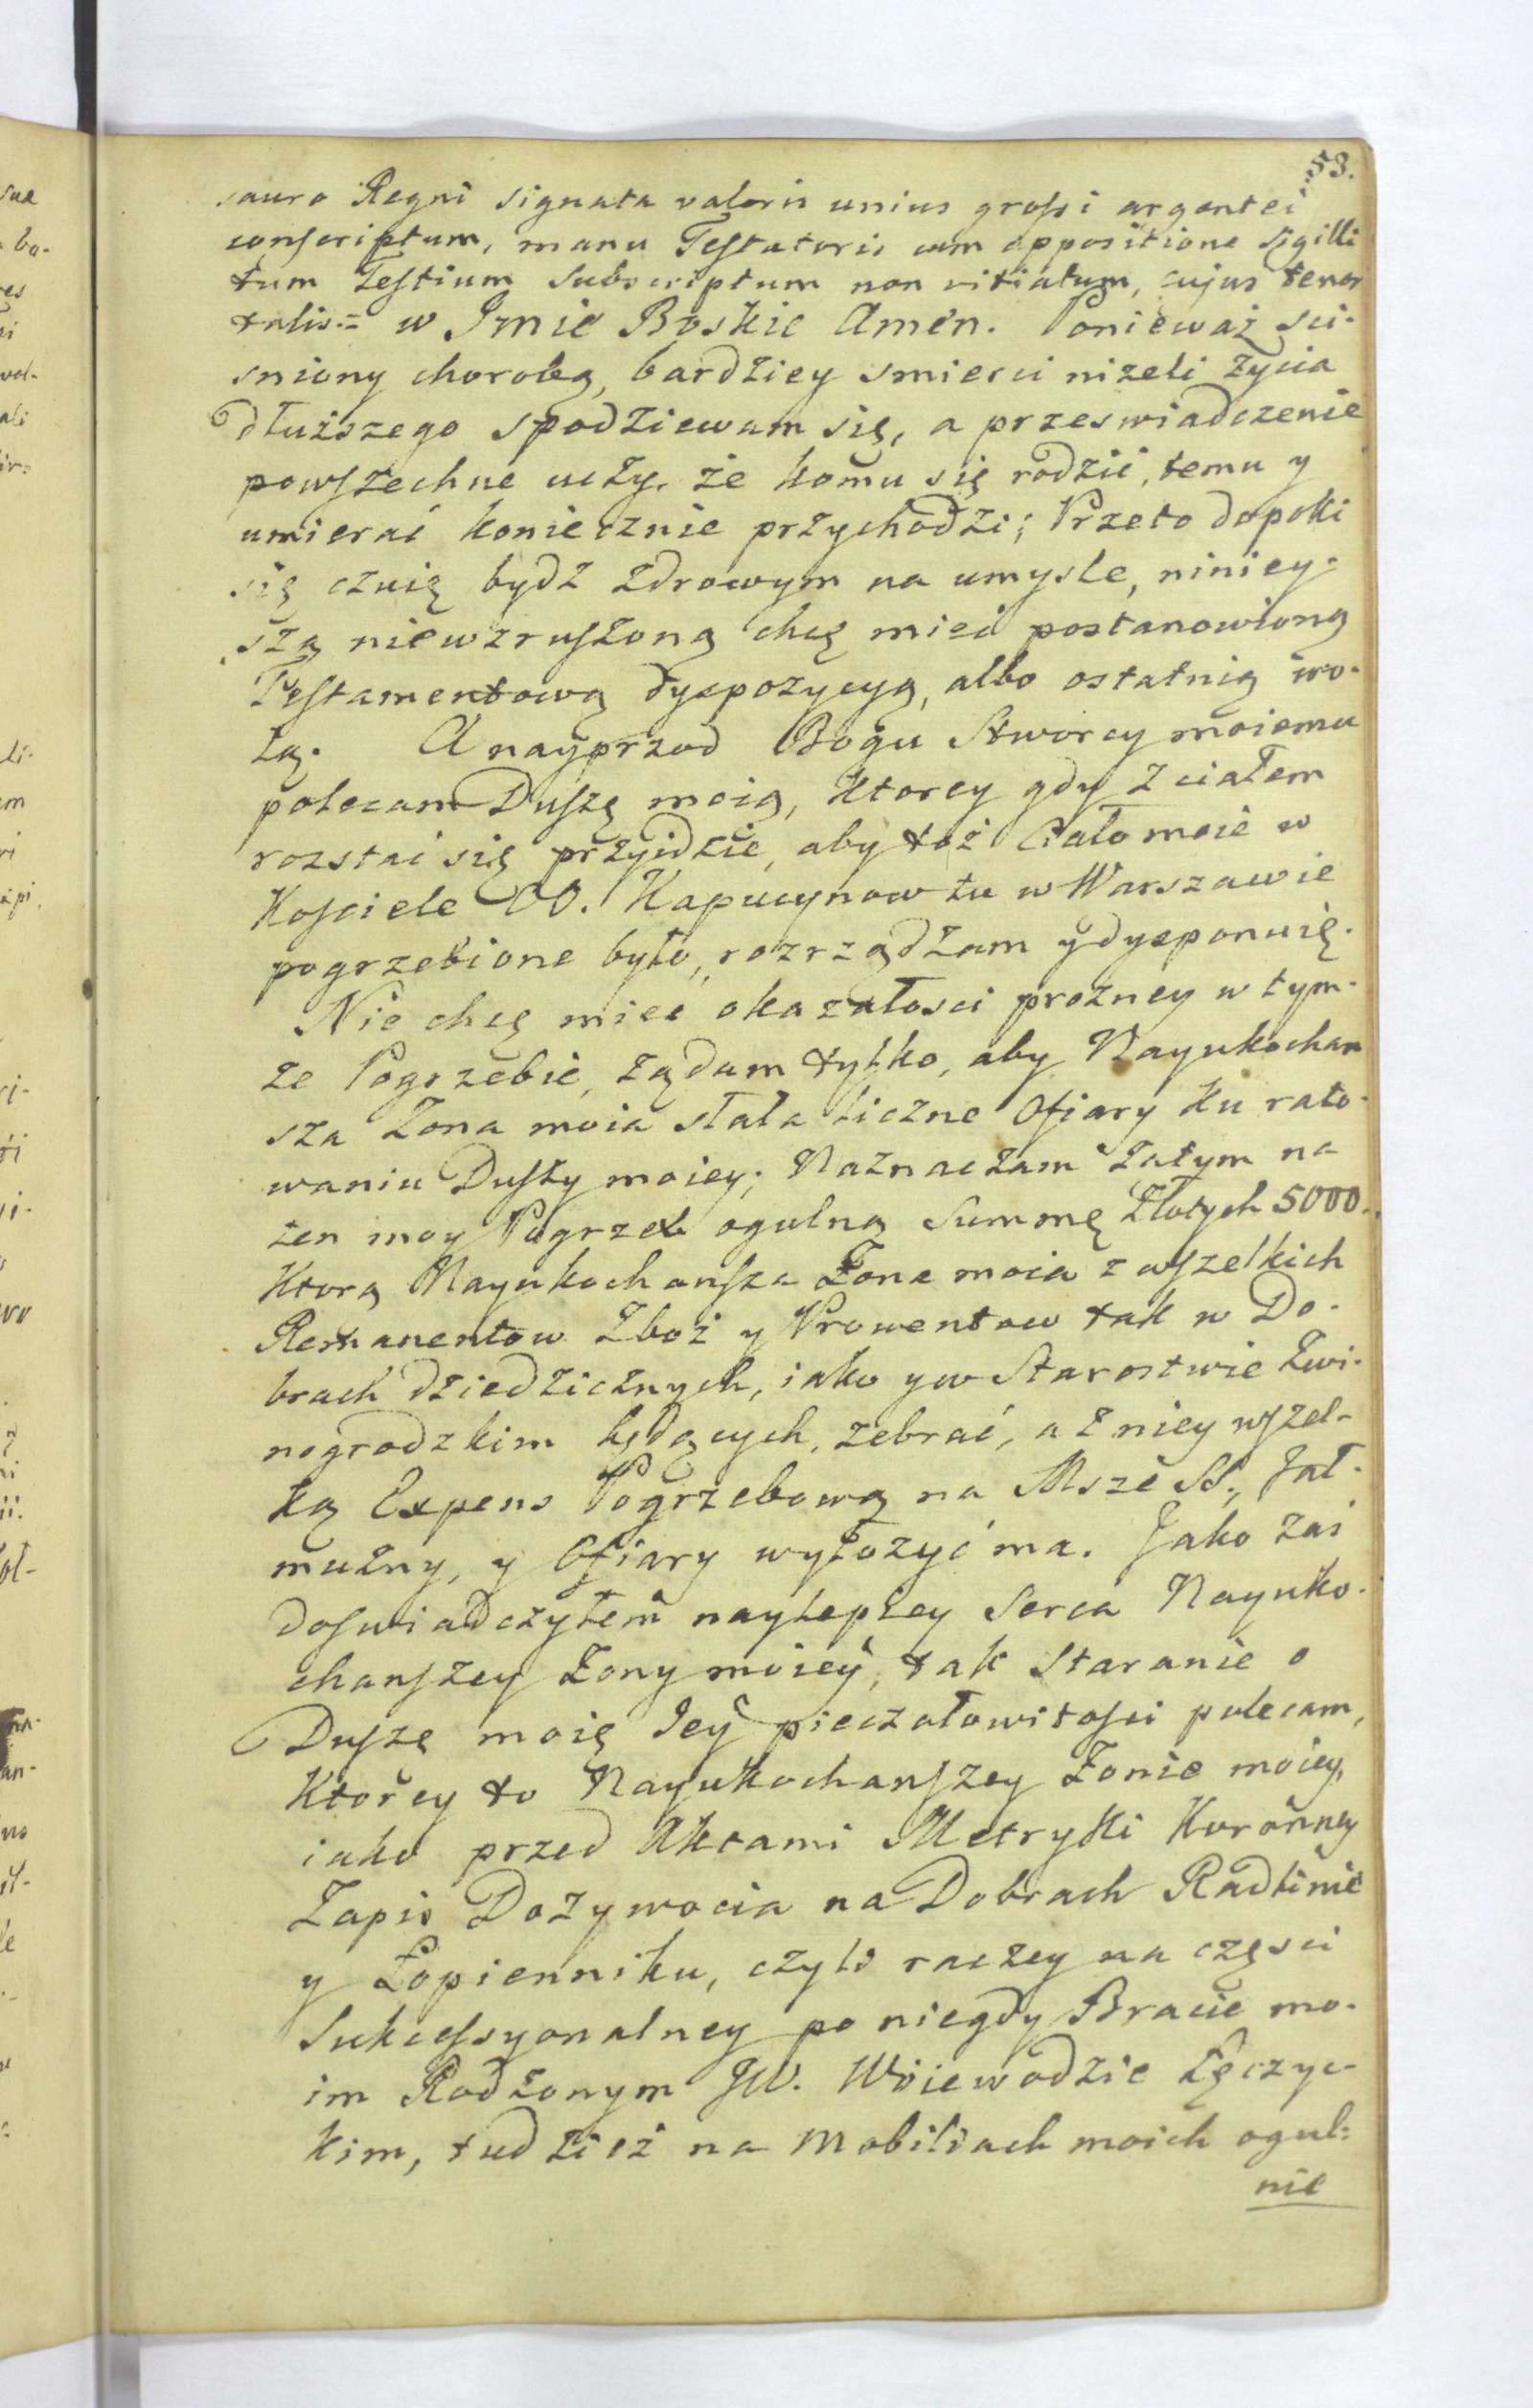 53.
sauro Regni signata valoris unius grossi argentei
conscriptum, manu Testatoris cum appositione Sigilli
tum Testium subscriptum non vitiatum, cujus tenor
talis:= w Jmie Boskie Amen. Ponieważ sci-
sniony chorobą, bardziey smierci nizeli życia
dłuższego spodziewam się, a przeswiadczenie
powszechne uczy, że komu się rodzić, temu y
umierać koniecznie przychodzi; Przeto dopoki
się czuię bydz zdrowym na umysle, niniey-
szą niewzruszoną chcę mieć postanowioną
Testamentową dyspozycyą, albo ostatnią wo-
lą. A nayprzod Bogu Stworcy moiemu
polecam Duszę moią, ktorey gdy z ciałem
rozstać się przyidzie, aby toż Ciało moie w
Kosciele OO. Kapucynow tu w Warszawie
pogrzebione było, rozrządzam y dysponuię.
Nie chcę mieć okazałosci prozney w tym-
że Pogrzebie, żądam tylko, aby Nayukochan
sza Zona moia słała liczne Ofiary ku rato-
waniu Duszy moiey; Naznaczam zatym na
ten moy Pogrzeb ogulną Summę Złotych 5000.
Ktorą Nayukochansza Żona moia z wszelkich
Remanentow Zboż y Prowentow tak w Do-
brach dziedzicznych, iako y w Starostwie Zwi-
nogrodzkim będących, zebrać, a z niey wszel-
ką Expens Pogrzebową na Msze SS., Jał-
mużny, y Ofiary wyłożyć ma. Jako zaś
doswiadczyłem naylepszey Serca Nayuko-
chanszey Żony moiey, tak Staranie o
Duszę moię Jey pieczołowitosci polecam,
Ktorey to Nayukochanszey Żonie moiey,
iako przed Aktami Metryki Koronney
Zapis Dożywocia na Dobrach Radlinie
y Łopienniku, czyli raczey na części
Sukcessyonalney po niegdy Bracie mo-
im Rodzonym JW. Woiewodzie Łęczyc-
kim, tudzież na Mobiliach moich ogul=
nie